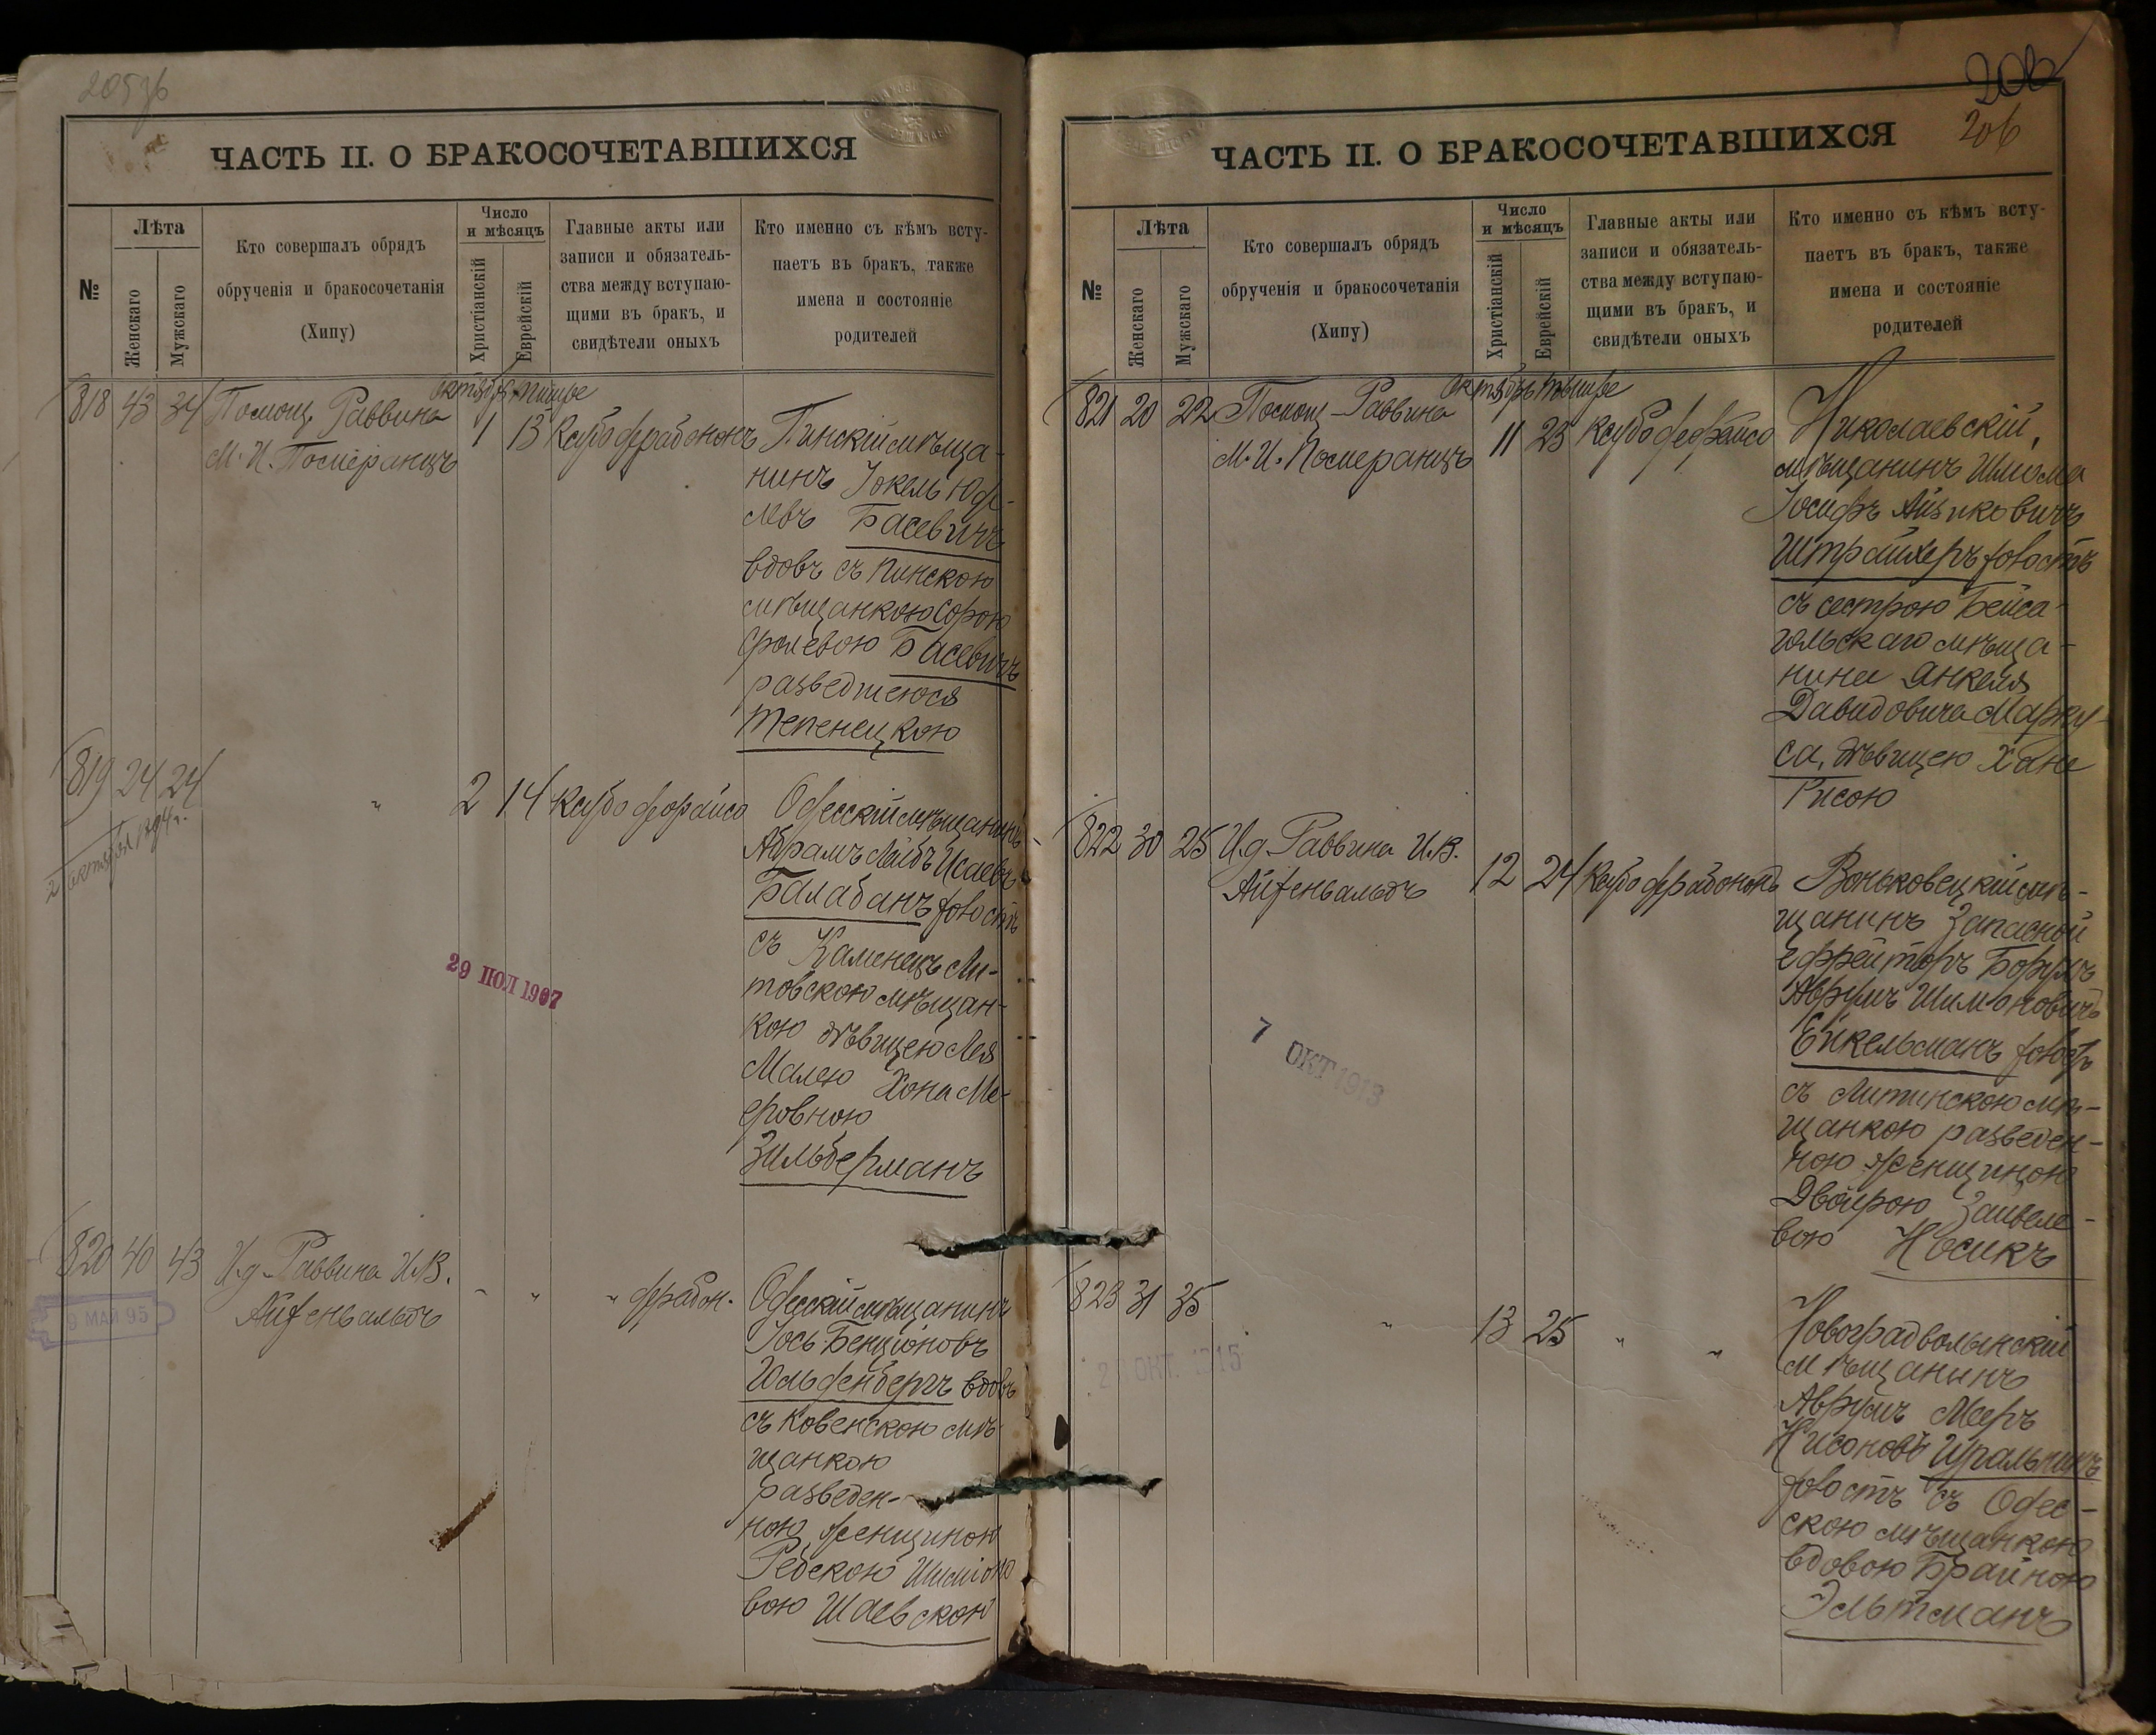 205 об
ЧАСТЬ II. О БРАКОСОЧЕТАВШИХСЯ
№
Лѣта
Женскаго
Мужскаго
Кто совершалъ обрядъ
обрученія и бракосочетанія
(Хипу)
Число
и мѣсяцъ
Христіанскій
Еврейскій
Главные акты или
записи и обязатель-
ства между вступаю-
щими въ бракъ, и
свидѣтели оныхъ
Кто именно съ кѣмъ всту-
паетъ въ бракъ, также
имена и состояніе
родителей
Октябрь Тишре
818 43 34 Помощ. Раввина
М. И. Померанцъ
1 13
Пинскій мѣща-
нинъ Іокель
Басевичъ
вдовъ съ Пинскою
мѣщанкою Сорою
Сролевою Басевичъ
разведшеюся
Тепенецкою
819 24 24
2 октября 1894 г.
" 2 14
Одесскій мѣщанинъ
Абрамъ Лейбъ Исаевъ
Балабанъ холостъ
съ Каменецъ Ли-
товскою мѣщан-
кою дѣвицею Лея
Малею Хона Ме-
еровною
Зильберманъ
29 ПОЛ 1907
820 40 43 И.д. Раввина И.В.
Айзенвальдъ
" " "
9 МАЙ 95
Одесскій мѣщанинъ
Іось Бенціоновъ
Гольденбергъ вдовъ
съ Ковенскою мѣ-
щанкою
разведен-
ною женщиною
Ребекою
вою Шаевскою
206
206
ЧАСТЬ II. О БРАКОСОЧЕТАВШИХСЯ
№
Лѣта
Женскаго
Мужскаго
Кто совершалъ обрядъ
обрученія и бракосочетанія
(Хипу)
Число
и мѣсяцъ
Христіанскій
Еврейскій
Главные акты или
записи и обязатель-
ства между вступаю-
щими въ бракъ, и
свидѣтели оныхъ
Кто именно съ кѣмъ всту-
паетъ въ бракъ, также
имена и состояніе
родителей
Октябрь Тишре
821 20 22 Помощ. Раввина
М. И. Померанцъ
11 23
Николаевскій
мѣщанинъ Шлома
Іосифъ Айзиковичъ
Штрайхеръ холостъ
съ сестрою Бейса-
гольскаго мѣща-
нина Янкеля
Давидовича Марку-
са, дѣвицею Хане
Рисою
822 30 25 И.д. Раввина И.В.
Айзенвальдъ
12 24
Воньковецкій мѣ-
щанинъ Запасной
ефрейторъ Борухъ
Аврумъ Шимоновичъ
Ейкельманъ холостъ
съ Литинскою мѣ-
щанкою разведен-
ною женщиною
Двойрою Зайвеле-
вою Носикъ
7 ОКТ 1913
823 31 35
" 13 25 " "
ОКТ. 1915
Новоградволынскій
мѣщанинъ
Аврумъ Мееръ
Нисоновъ Игральникъ
холостъ съ Одес-
скою мѣщанкою
вдовою Брайною
Эльтманъ